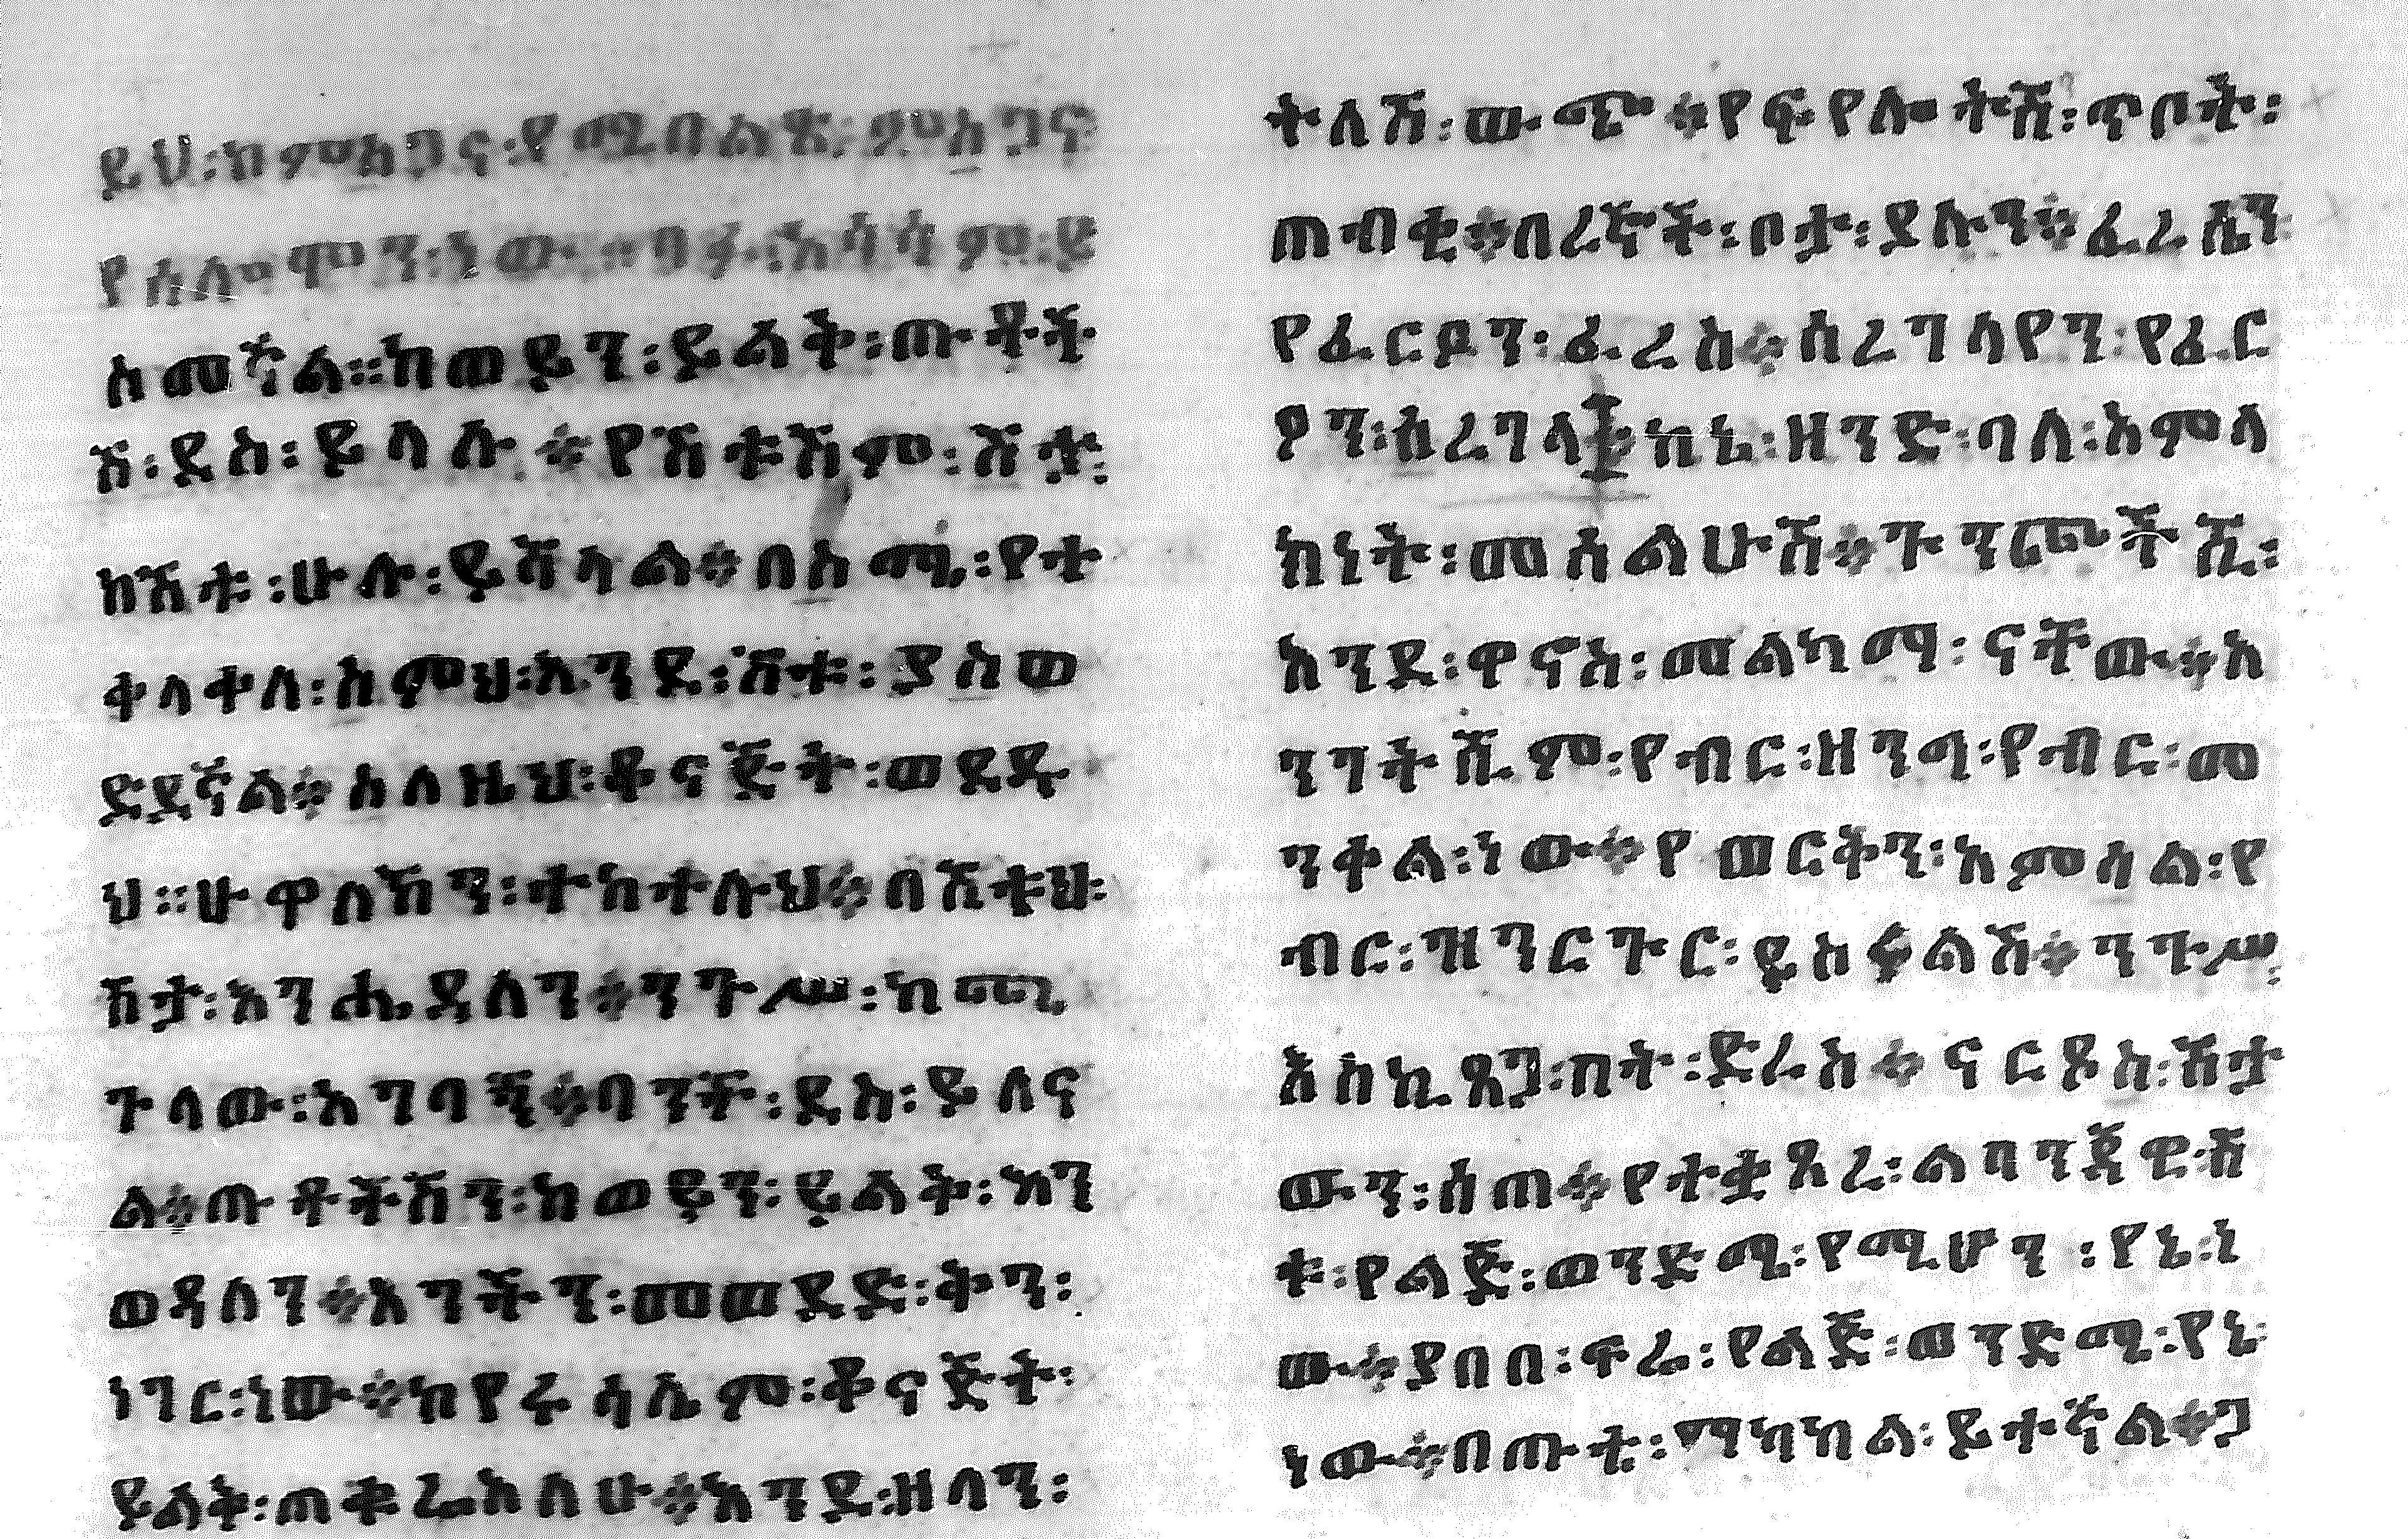 ይህ፡ከምስጋና፡የሚበልጽ፡ምስጋና፡
የሰሎሞን፡ነው።ባፉ፡አሳሳም፡ይ
ስመኛል።ከወይን፡ይልቅ፡ጡቶች
ሽ፡ደስ፡ይላሉ፨የሽቱሽም፡ሽታ፡
ከሽቱ፡ሁሉ፡ይሻላል፨በስሜ፡የተ
ቀላቀለ፡ስምህ፡እንደ፡ሽቱ፡ያስወ
ድደኛል፨ስለዚህ፡ቆናጅት፡ወደዱ
ህ።ሁዋለኸን፡ተከተሉህ፨በሽቱህ፡
ሽታ፡እንሔዳለን፨ንጉሥ፡ከጫ
ጉላው፡አግባኝ፨ባንች፡ደስ፡ይለና
ል፨ጡቶችሽን፡ከወይን፡ይልቅ፡እን
ወዳለን፨አንችን፡መወደድ፡ቅን፡
ነገር፡ነው፨ከየሩሳሌም፡ቆናጅት፡
ይልቅ፡ጠቁሬአለሁ፨እንደ፡ዘላን፡
ትለሽ፡ውጭ፨የፍየሎትሽ፡ጥቦት፡
ጠብቂ፨በረኞች፡ቦታ፡ያሉን፨ፈረሴን
የፈርዖን፡ፈረስ፨ሰረገላየን፡የፈር
ዖን፡ሰረገላ፨ከኔ፡ዘንድ፡ባለ፡አምላ
ክነት፡መሰልሁሽ፨ጉንርጮችሺ፡
እንደ፡ዋኖስ፡መልካማ፡ናቸው፨አ
ንገትሺም፡የብር፡ዘንግ፡የብር፡መ
ንቀል፡ነው፨የወርቅን፡አምሳል፡የ
ብር፡ዝንርጉር፡ይስፉልሽ፨ንጉሥ፡
እስኪጸጋ፡ቤት፡ድራስ፨ናርዶስ፡ሽታ
ውን፡ሰጠ፨የተቋጸረ፡ልባንጃዊ፡ሽ
ቱ፡የልጅ፡ወንድሜ፡የሚሆን፡የኔ፡ነ
ው፨ያበበ፡ፍሬ፡የልጅ፡ወንድሜ፡የኔ፡
ነው፨በጡቴ፡ማካከል፡ይተኛል፨ጋ